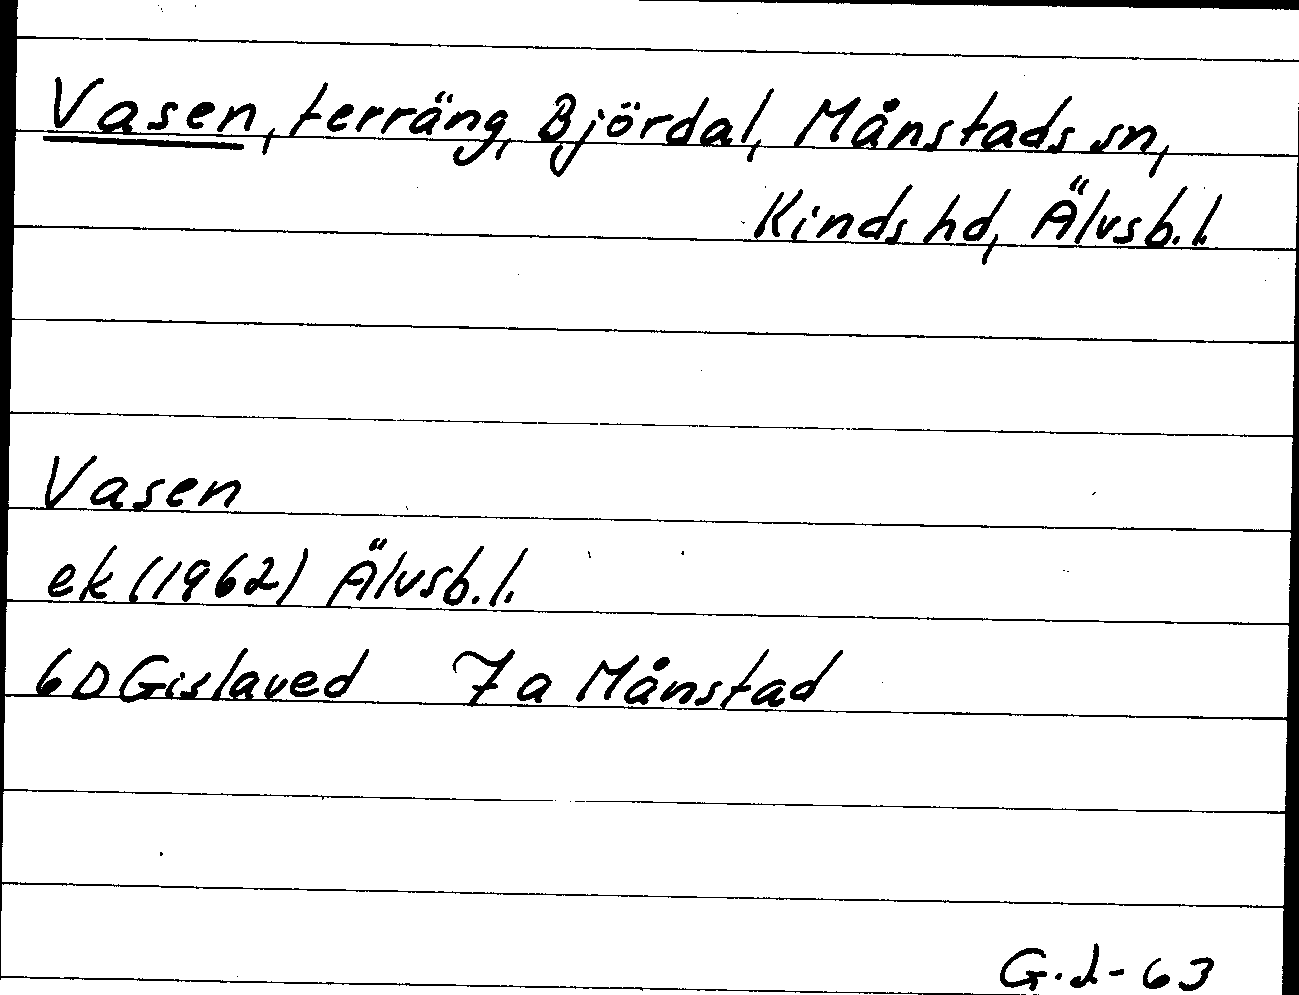 Vasen, terräng, Björdal, Månstads sn,
Kinds hd, Älvsb.l.
Vasen
ek (1962) Älvsb.l.
6D Gislaved 7a Månstad
G.d-63